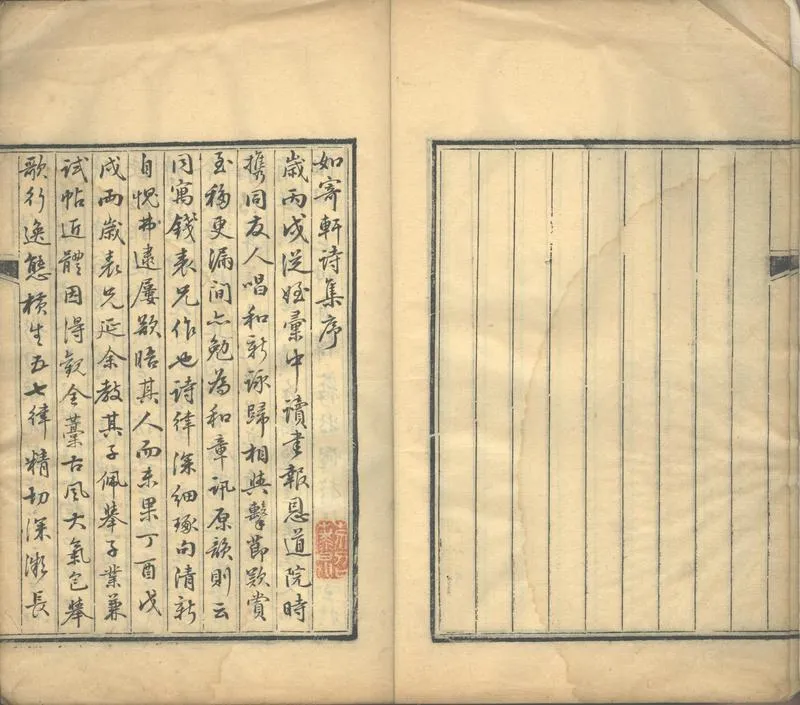 如寄軒詩集序
歲丙戌從姪彙中讀書報恩道院時
攜同友人唱和新詠歸相與擊節歎賞
至穐更漏間亦勉為和章訊原韻則云
同寓錢表兄作也詩律深細琢句清新
自愧弗逮屢欲晤其人而未果丁酉戊
戌兩歲表兄延余教其子佩犖子業兼
試帖近體因得觀全藁古風大氣包舉
歌行逸態橫生五七律精切深凝長